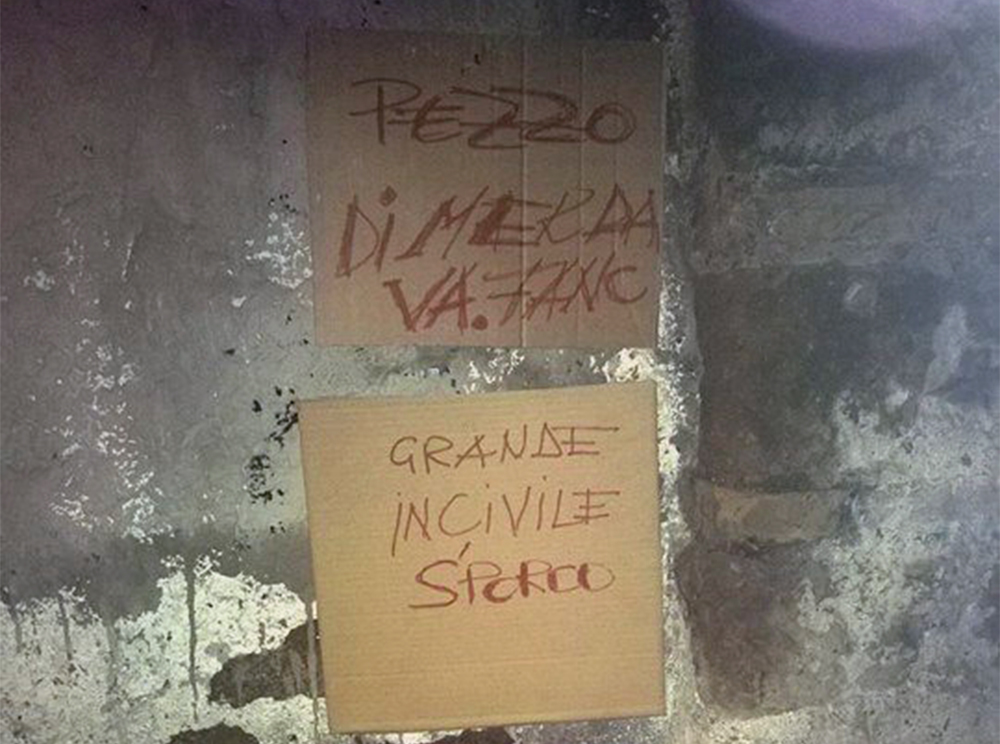 PEZZO
Di MERDA
VA.FANC
GRANDE
iNCiVILE
SPORCO